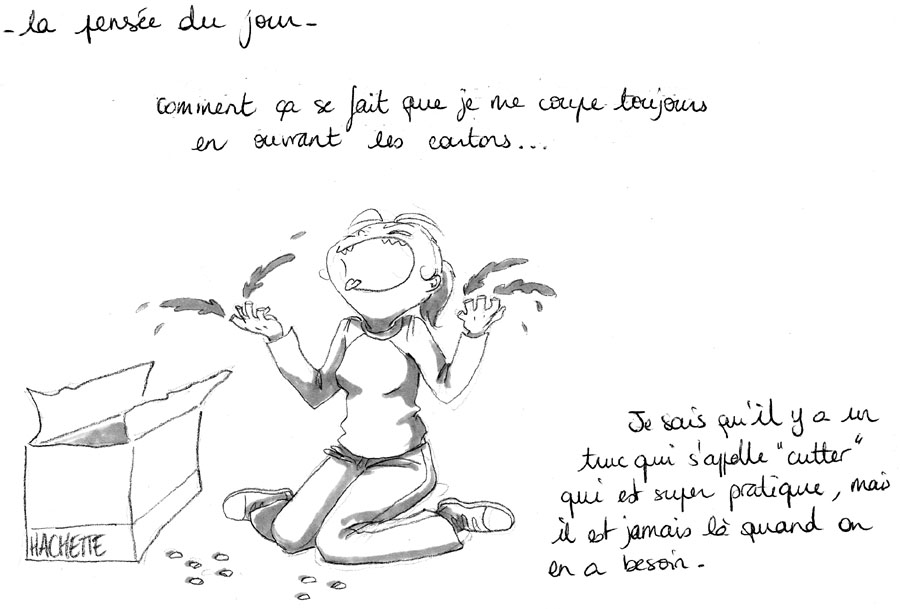 -la pensée du jour-
comment ça se fait que je me coupe toujours
en ouvrant les cartons...
Je sais qu'il y a un
truc qui s'appelle "cutter"
qui est super pratique, mais
il est jamais là quand on
en a besoin-
HACHETTE